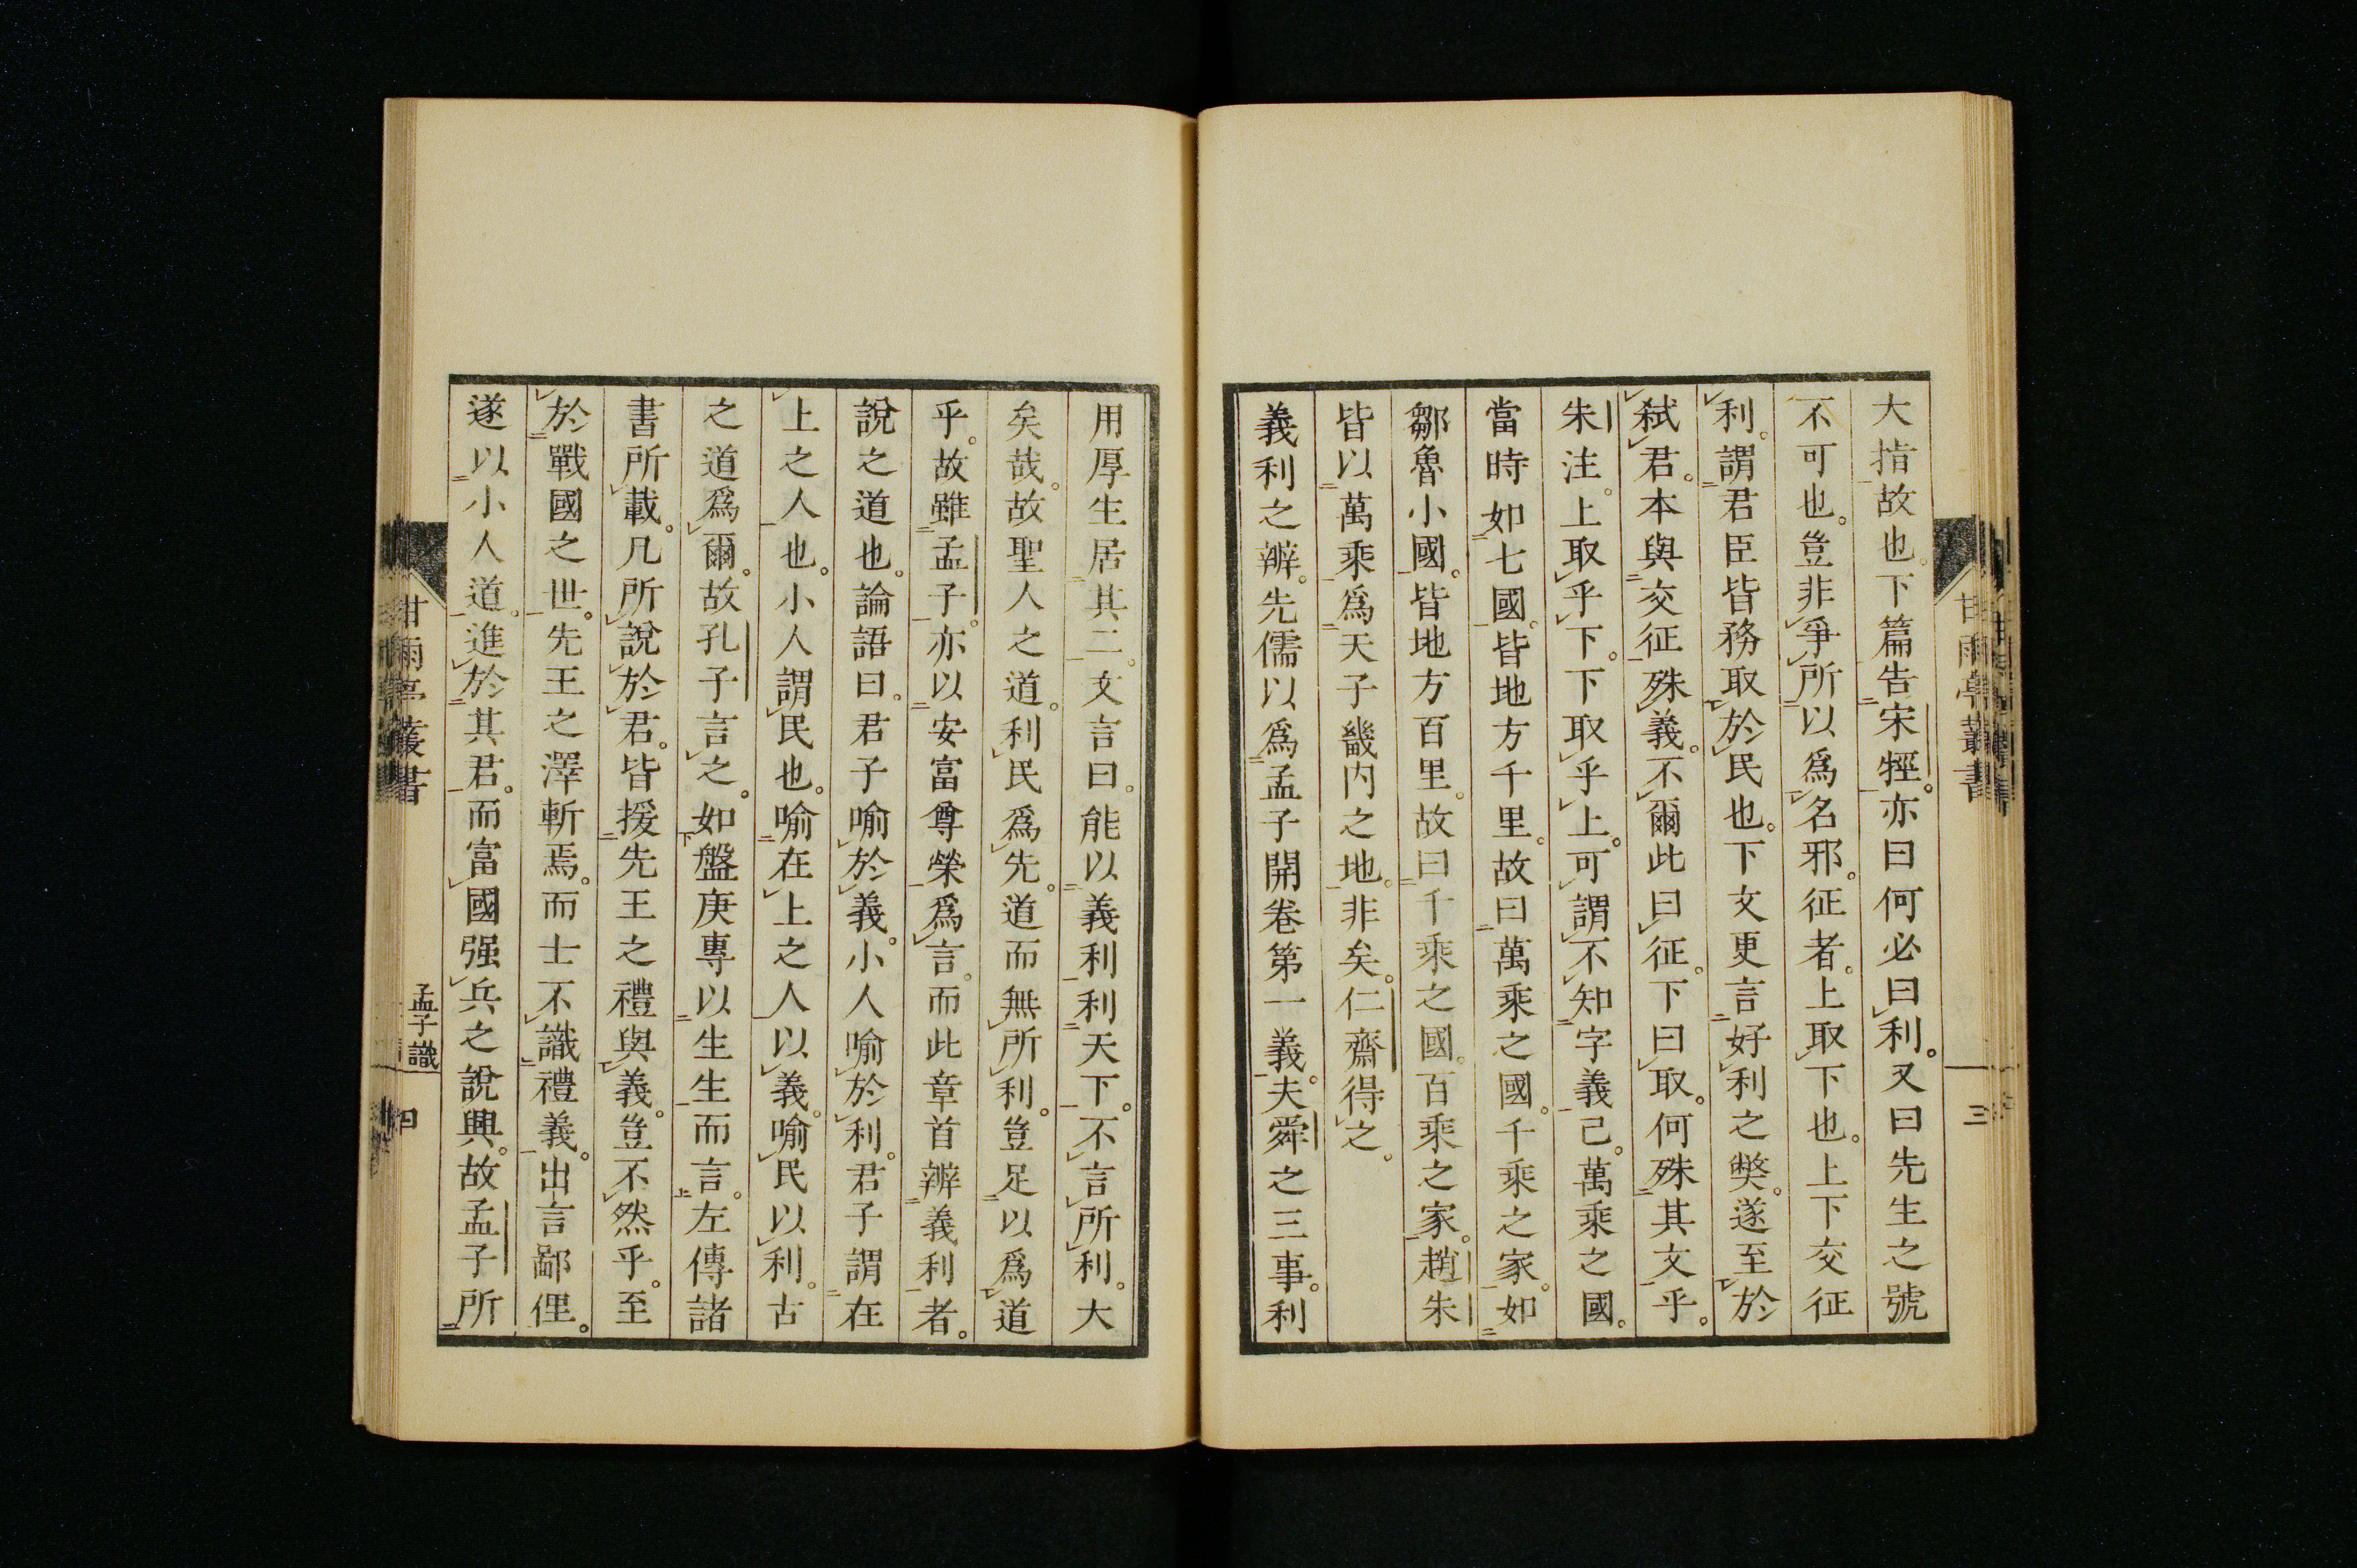 大指故也。下篇告宋牼。亦曰何必曰利。又曰先生之號
不可也。豈非爭所以爲名邪。征者。上取下也。上下交征
利。謂君臣皆務取於民也。下文更言好利之獘。遂至於
弑君。本與交征殊義。不爾此曰征。下曰取。何殊其文乎。
朱注。上取乎下。下取乎上。可謂不知字義己。萬乘之國。
當時如七國。皆地方千里。故曰萬乘之國。千乘之家。如
鄒魯小國。皆地方百里。故曰千乘之國。百乘之家。趙朱
皆以萬乘爲天子畿内之地。非矣。仁齋得之。
義利之辨。先儒以爲孟子開卷第一義。夫舜之三事。利
甘雨亭叢書
三
用厚生居其二。文言曰。能以義利利天下。不言所利。大
矣哉。故聖人之道。利民爲先。道而無所利。豈足以爲道
乎。故雖孟子。亦以安富尊榮爲言。而此章首辨義利者。
說之道也。論語曰。君子喻於義。小人喻於利。君子謂在
上之人也。小人謂民也。喻在上之人以義。喻民以利。古
之道爲爾。故孔子言之。如盤庚專以生生而言。左傳諸
書所載。凡所說於君。皆援先王之禮與義。豈不然乎。至
於戰國之世。先王之澤斬焉。而士不識禮義。出言鄙俚。
遂以小人道。進於其君。而富國强兵之說興。故孟子所
甘雨亭叢書
孟子識
四